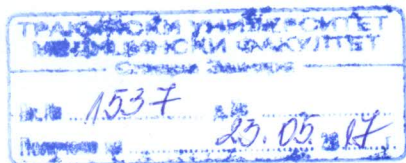 ТРАКИЙСКИ УНИВЕРСИТЕТ
МЕДИЦИНСКИ ФАКУЛТЕТ
Стара Загора
1537
23.05. 17